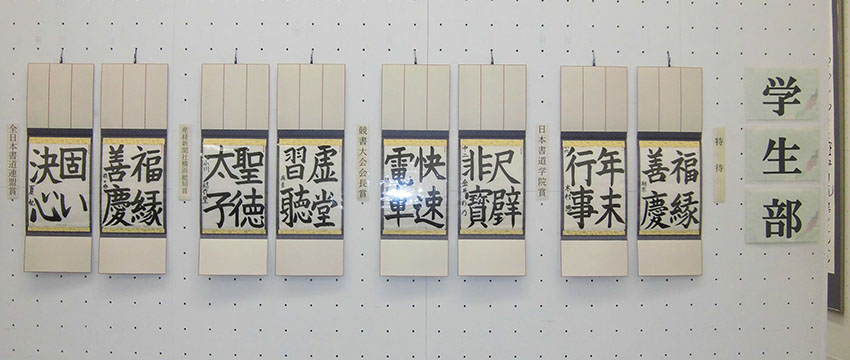 学生部
特待
福縁
善慶
年末
行事
日本書道学院賞
尺璧
非寶
快速
電車
競書大会会長賞
虚堂
習聴
聖徳
太子
産経新聞社横浜総局賞
福縁
善慶
固い
決心
全日本書道連盟賞